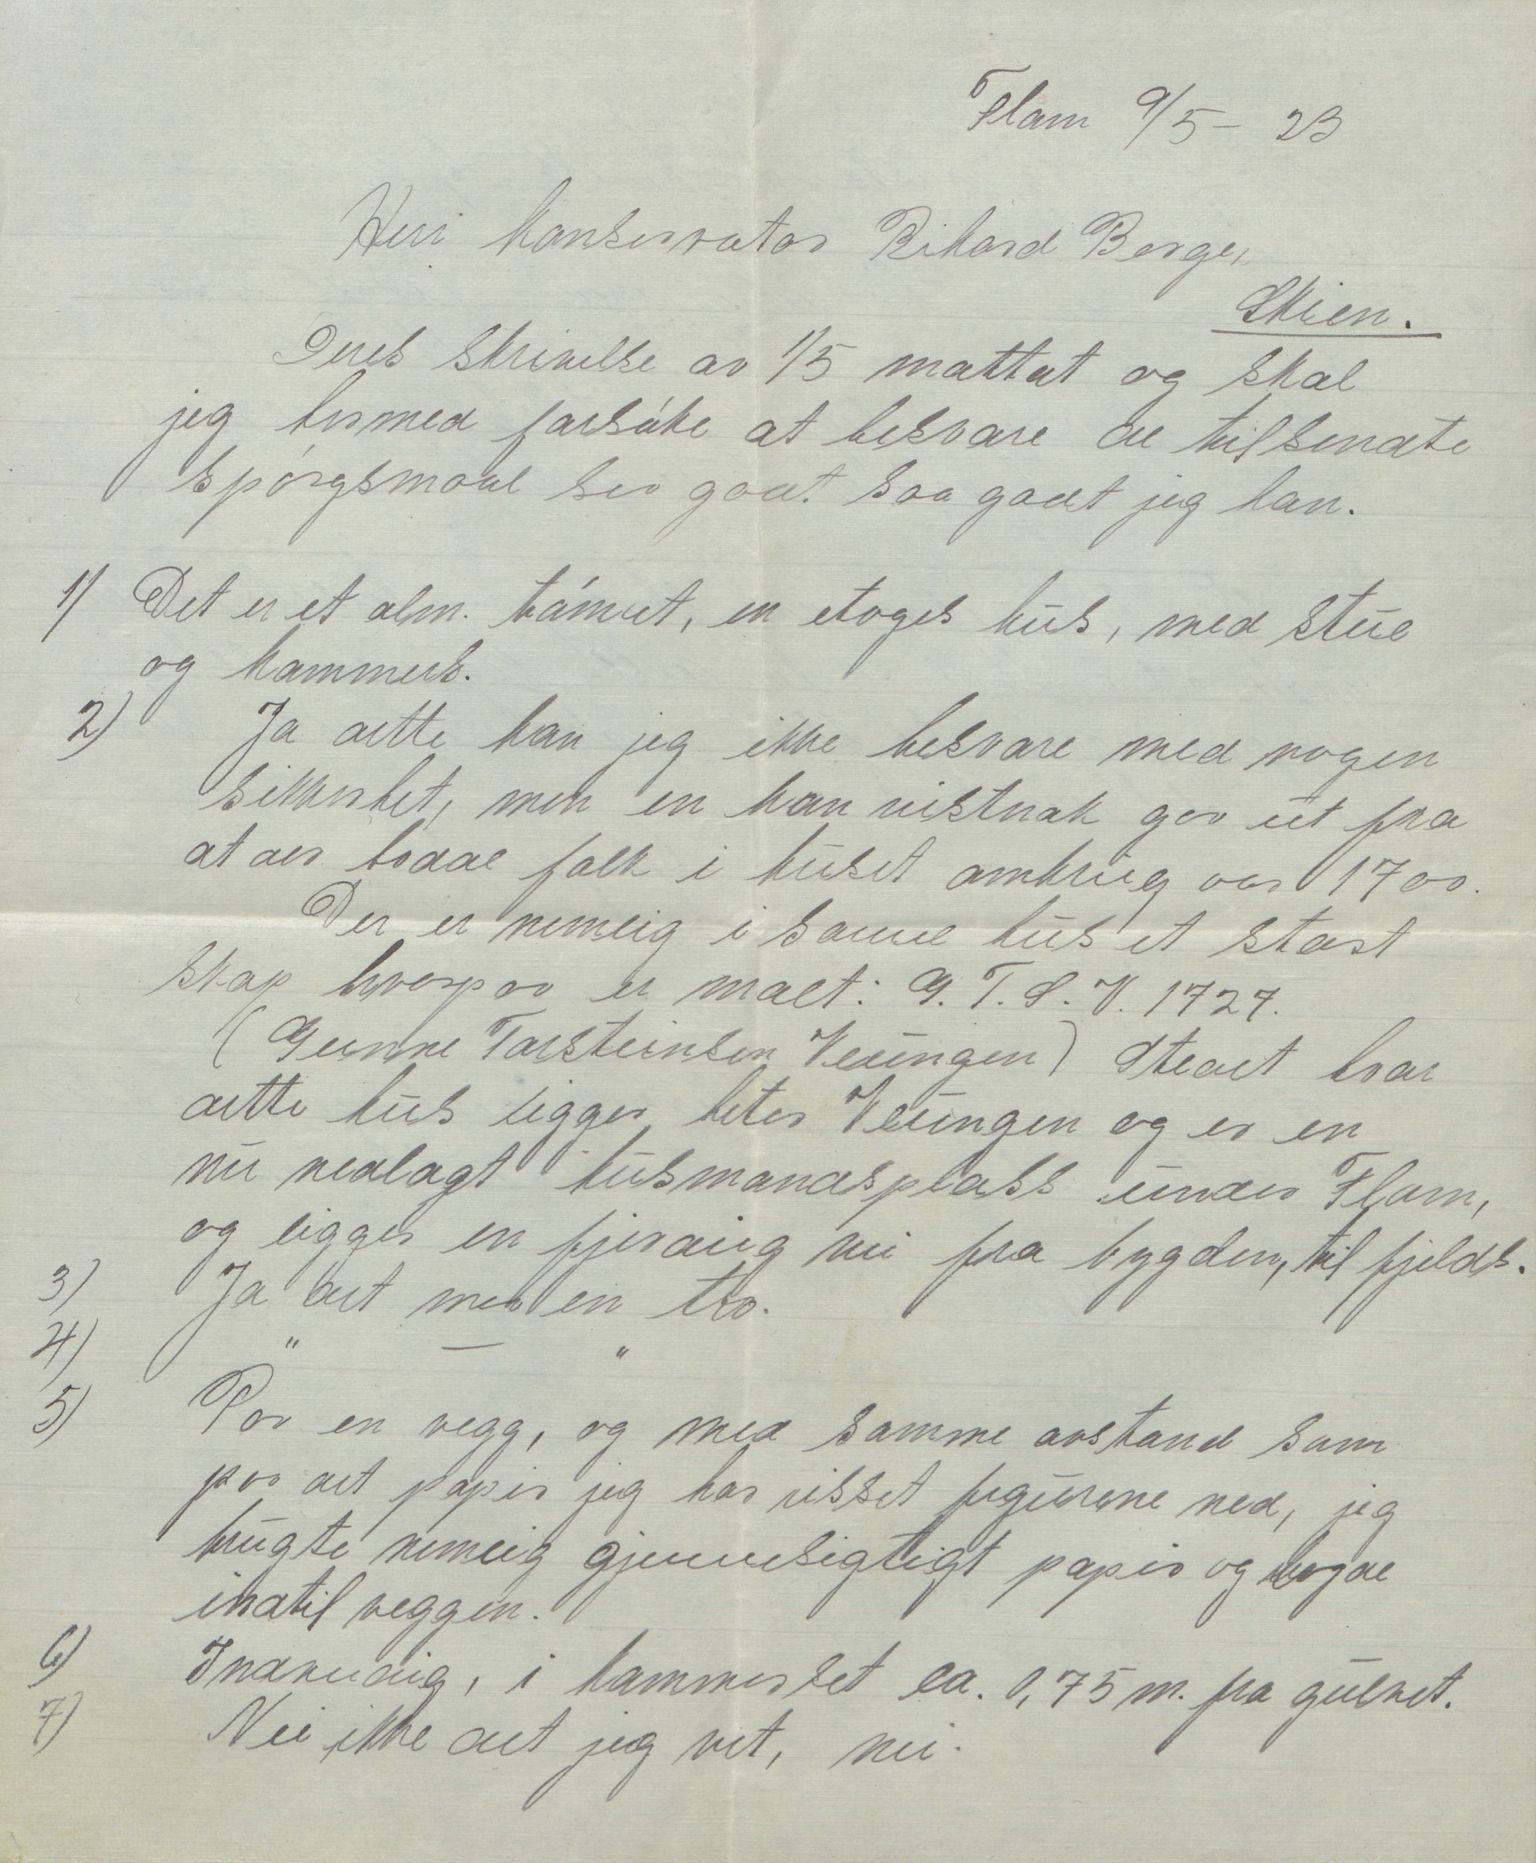 Flom 9/5 - 23
Herr Konservator Rikard Berge,
Skien.
Deres skrivelse av 1/5 mottat og skal
jeg hermed forsöke at besvare de tilsendte
spörgsmaal saa godt saa godt jeg kan.
1) Det er et alm. tömret, en etages hus, med stue
og kammers.
2) Ja dette kan jeg ikke besvare med nogen
sikkerhet, men en kan vistnok gaa ut fra
at der bodde folk i huset omkring aar 1700.
Der er nemlig i samme hus et stort
skap hvorpaa er malt: G. T. S. V. 1727.
(Gunne Torsteinsen Veungen) Stedet hvor
dette hus ligger heter Veungen og er en
nu nedlagt husmandsplass under Flom,
og ligger en fjerding vei fra bygden, til fjelds.
3) Ja det maa en tro.
4) " — "
5) Paa en vegg, og med samme avstand som
paa det papir jeg har risset figurene ned, jeg
brugte nemlig gjennesigtigt papir og lagde
indtil veggen.
6) Indvendig, i kammerset ca. 0,75 m. fra gulvet.
7) Nei ikke det jeg vet, nei.